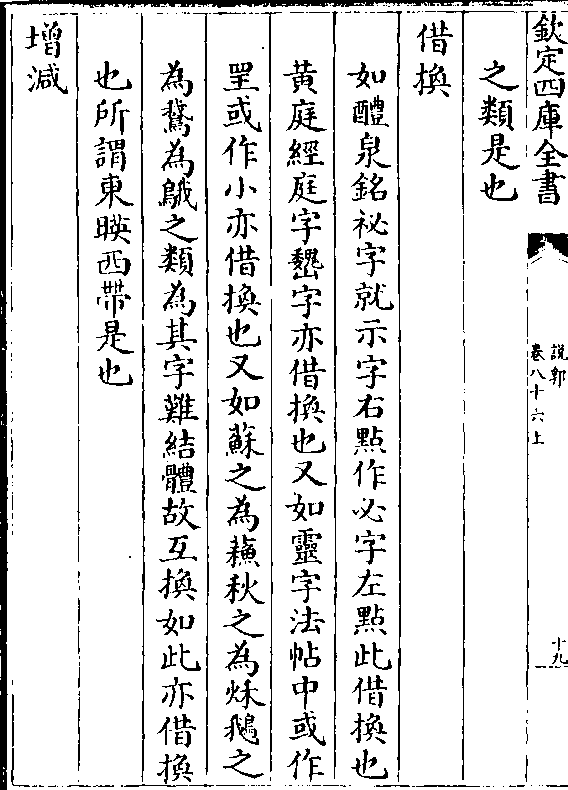 欽定四庫全書
說郛
卷八十六上
十九
之類是也
借換
如醴泉銘祕字就示字右點作必字左點此借換也
黃庭經庭字𪒠字亦借換也又如靈字法帖中或作
𦉭或作小亦借換也又如蘇之為蘓秋之為秌鵝之
為䳘為䳗之類為其字難結體故互換如此亦借換
也所謂東暎西帶是也
增減